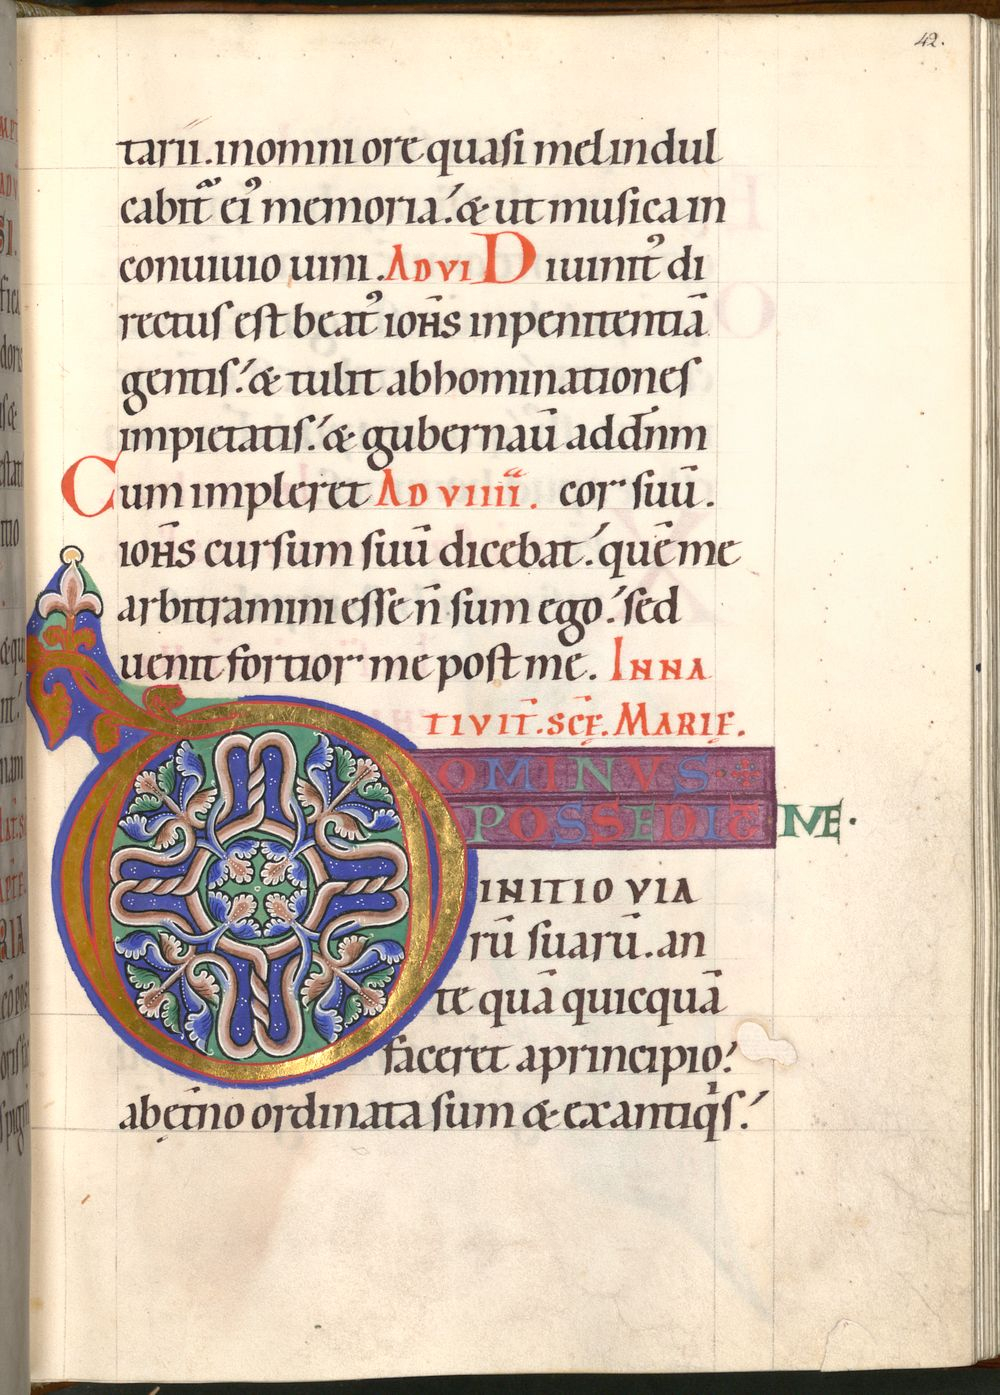 42.
tarii. in omni ore quasi mel indul
cabit᷑ ei᷒ memoria.᾽ & ut musica in
conuiuio uini. AD VI Diuinit᷒ di
rectus est beat᷒ ioħs in penitentiā
gentis.᾽ & tulit abhominationes
impietatis.᾽ & gubernaū ad dn̄m
Cum impleret AD VIIIIᵃ. cor suū.
ioħs cursum suū dicebat.᾽ quē me
arbitramini esse n̄ sum ego.᾽ sed
uenit fortior me post me. IN NA
TIVIT̄. SC̄Ę MARIĘ.
DOMINVS
POSSEDIT ME.
INITIO VIA
rū suarū. an
te quā quicquā
faceret a principio.᾽
ab ęt̄no ordinata sum & ex antiqͥs.᾽